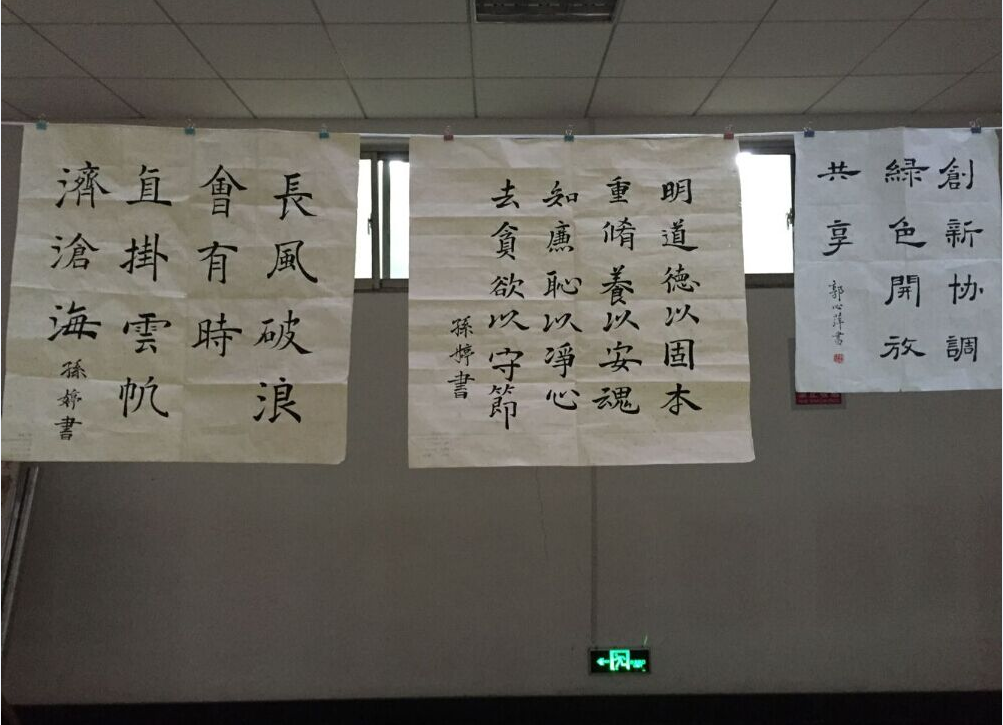 長風破浪
會有時
直掛雲帆
濟滄海
孫婷書
明道德以固本
重脩養以安魂
知廉恥以凈心
去貪欲以守節
孫婷書
創新協調
緑色開放
共享
郭心萍書